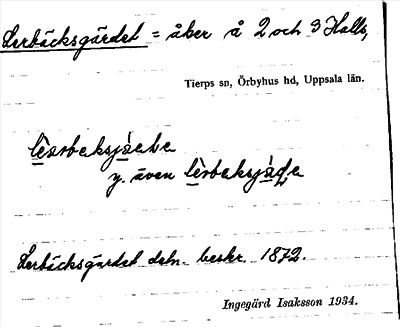 Lerbäcksgärdet = åker å 2 och 3 Halls,
Tierps sn, Örbyhus hd, Uppsala län.
y. även
Lerbäcksgärdet detn. beskr. 1872.
Ingegärd Isaksson 1934.